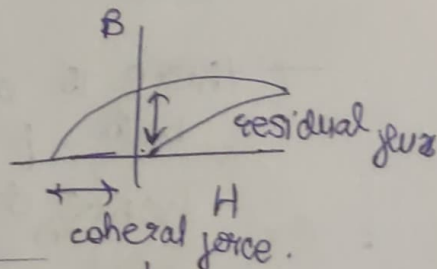 B
residual flux
H
coheral force.